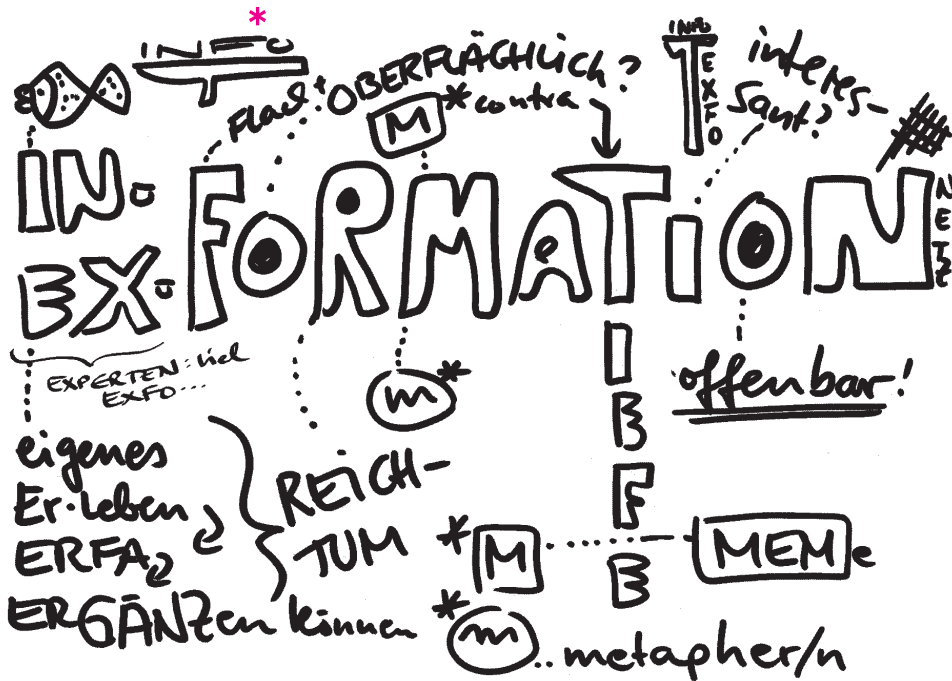 *
INFO
Flach + OBERFLÄCHLICH?
M * contra
INFO
TEXFO
interes-
sant?
IN- U
EX- Ü
FORMATION
NETZ
EXPERTEN: viel
EXFO...
m *
offenbar!
IBFB
eigenes
Er·leben
ERFA
ERGÄNZen können
REICH-
TUM
* M
MEMe
* m .. metapher/n